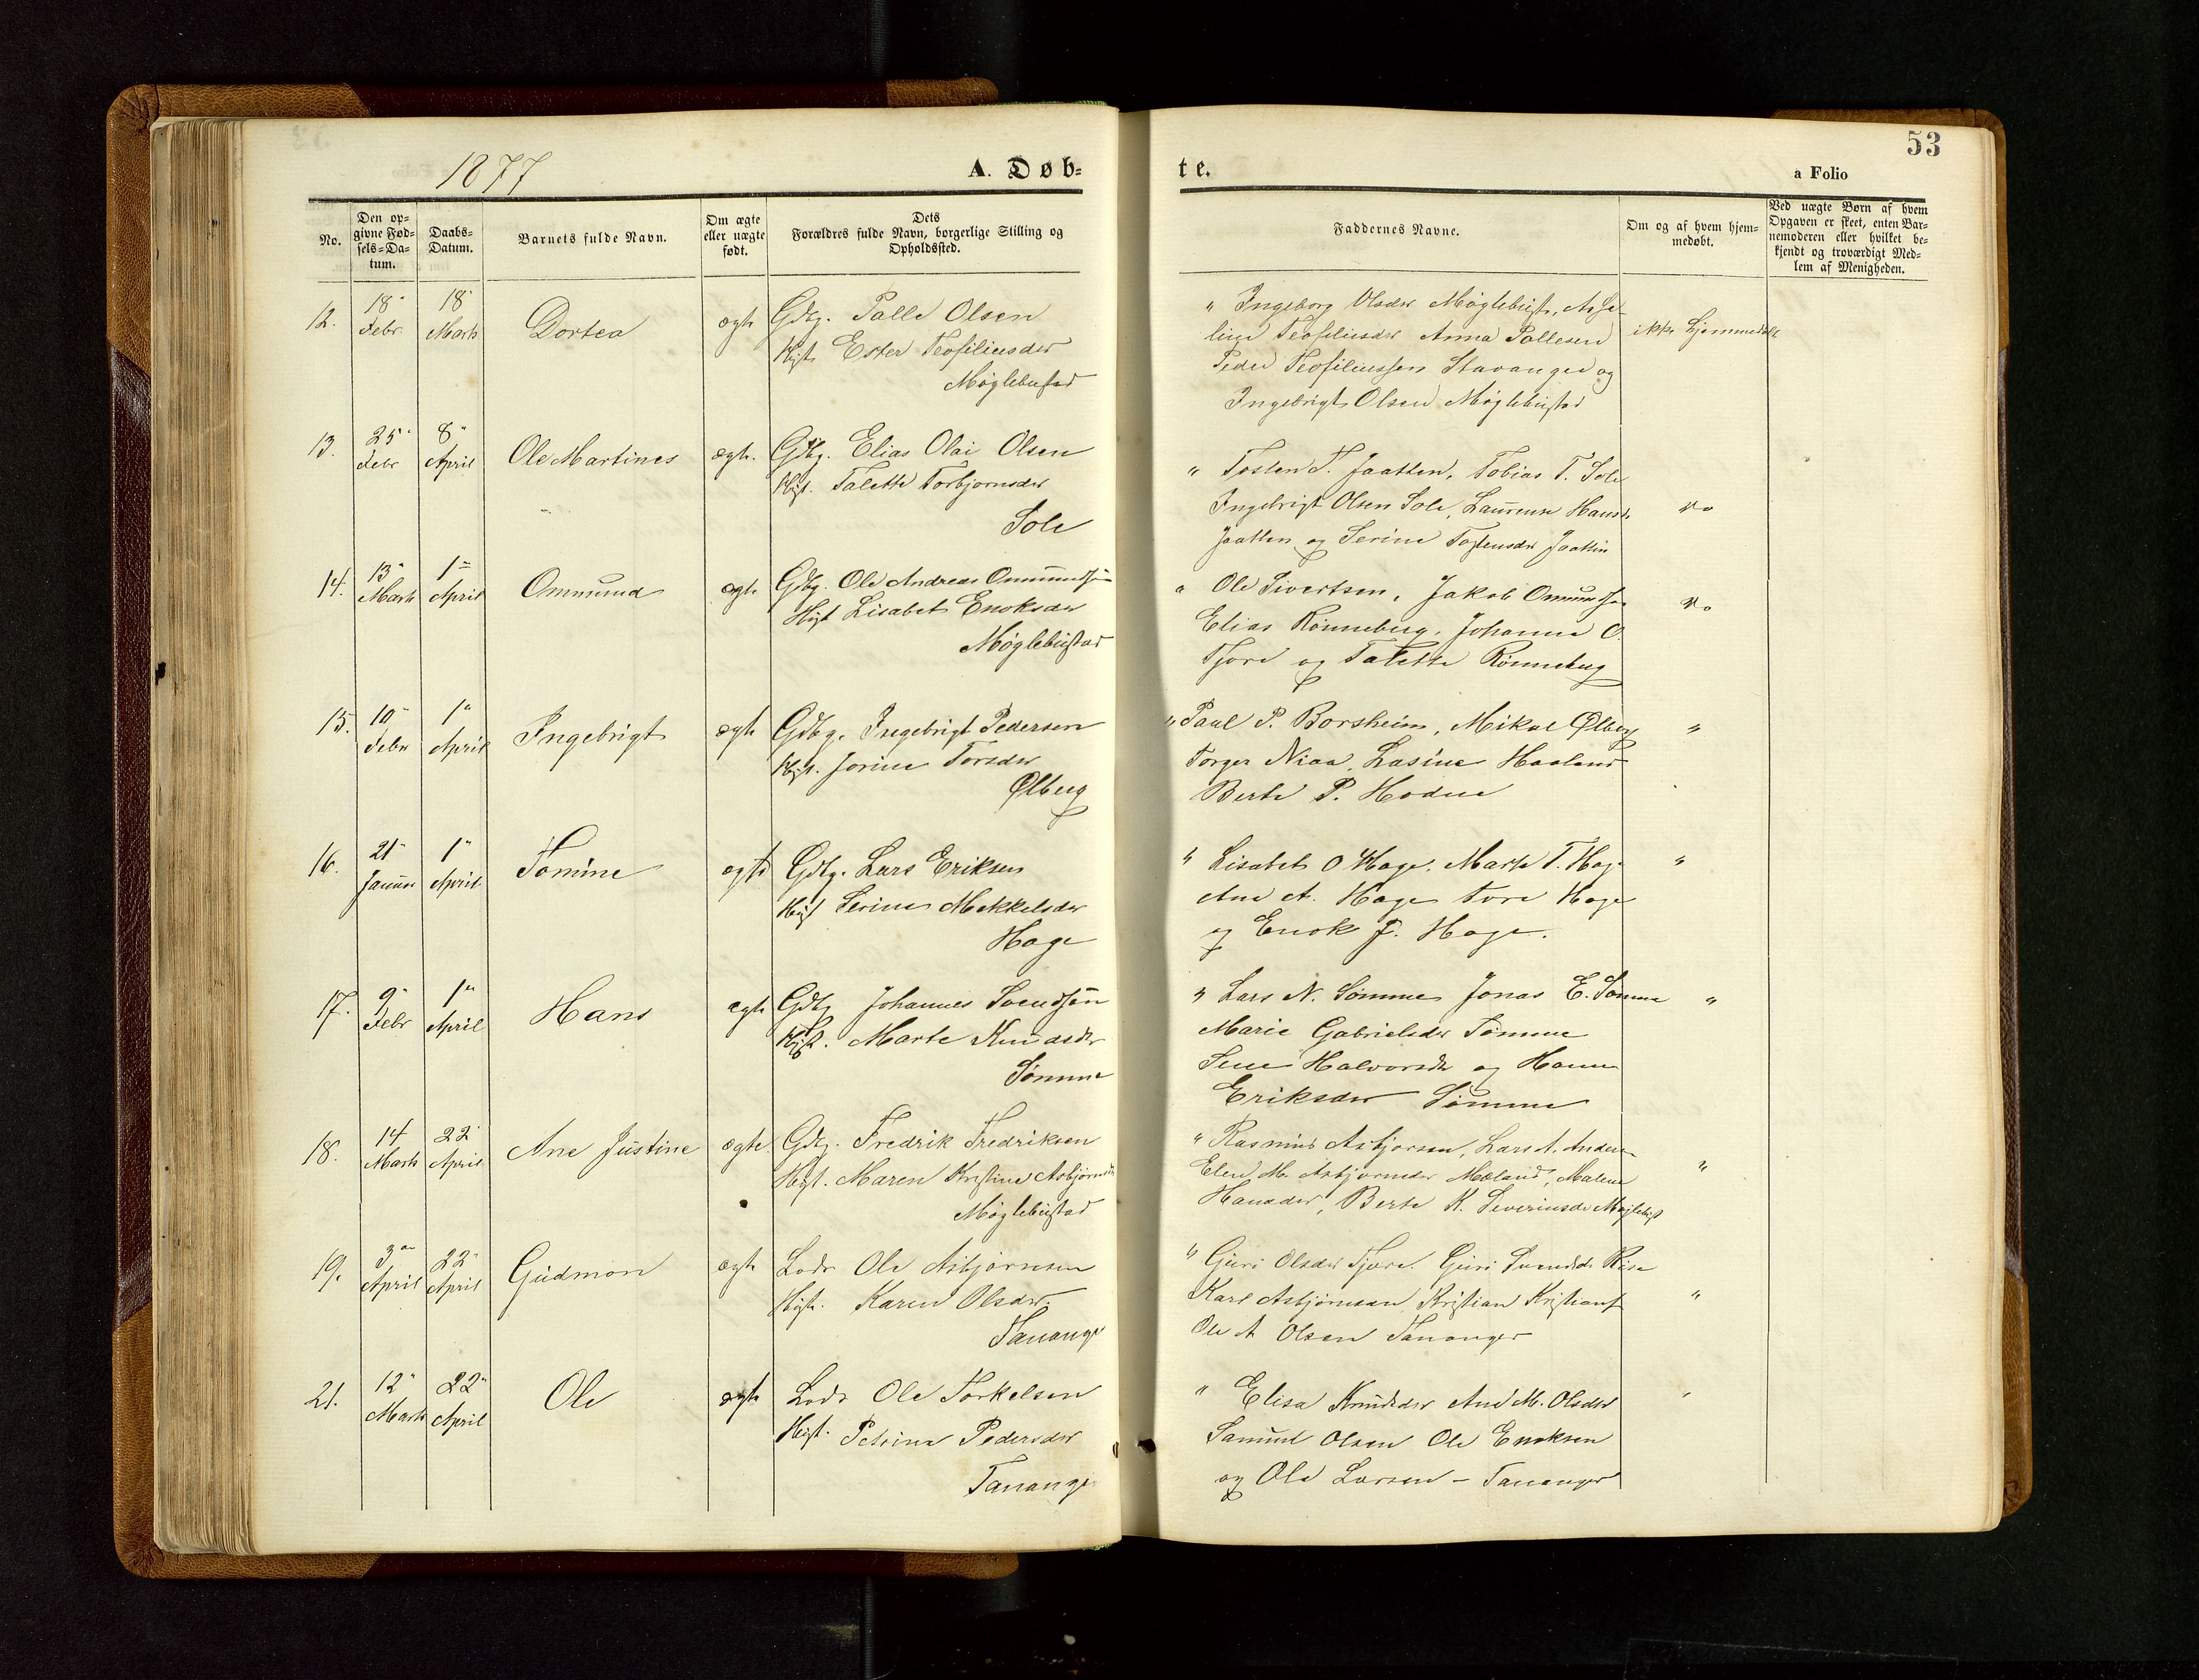 53
1877
A. Døb-
te.
a Folio
No.
Den op-
givne Fød-
sels-Da-
tum.
Daabs-
Datum.
Barnets fulde Navn.
Om ægte
eller uægte
født.
Dets
Forældres fulde Navn, borgerlige Stilling og
Opholdssted.
Faddernes Navne.
Om og af hvem hjem-
medøbt.
Ved uægte Børn af hvem
Opgaven er skeet, enten Bar-
nemoderen eller hvilket be-
kjendt og troværdigt Med-
lem af Menigheden.
12.
18"
Febr.
18"
Marts
Dortea
ægte
Gdbg. Palle Olsen
Hst. Ester Teofiliusdtr
Møglebustad
" Ingeborg Olsdtr Møglebust,
line Teofiliusdtr Anna Pallesen
Peder Teofiliussen Stavanger og
Ingebrigt Olsen Møglebustad
ikke hjemmedøbt
13.
25"
Febr
8"
April
Ole Martines
ægte.
Gdbg. Elias Olai Olsen
Hst. Talette Torbjørnsdtr
Sole
" Tosten T. Jaatten, Tobias T. Sole
Ingebrigt Olsen Sole, Laurense Hansdtr
Jaatten og Serine Tostensdtr Jaatten
14.
13"
Marts
1"
April
Ommund
ægte
Gdbg. Ole Andreas Ommundsen
Hst Lisabet Enoksdtr
Møglebustad
" Ole Sivertsen, Jakob Ommundsen
Elias Rønneberg, Johanna O.
Tjore og Talette Rønneberg
15.
10"
Febr
1"
April
Ingebrigt
ægte
Gdbg. Ingebrigt Pedersen
Hst. Jorine Torsdtr
Ølberg
" Paul P. Borsheim, Mikal Ølberg
Torger Niaa, Lasine Haaland
Berte P. Hodne
"
16.
21"
Januar
1"
April
Tomine
ægte
Gdbg. Lars Eriksen
Hst Serine Mikkelsdtr
Hage
" Lisabet O. Hage, Marta T. Hage
Ane A. Hage Tore Hage
og Enok J. Hage.
"
17.
9"
Febr
1"
April
Hans
ægte
Gdbg Johannes Svendsen
Hst. Marte Knudsdtr
Sømme
" Lars N. Sømme Jonas E. Sømme
Marie Gabrielsdtr Sømme
Sene Halvorsdtr og Hanne
Eriksdtr Sømme
"
18.
14
Marts
22"
April
Ane Justine
ægte
Gdbg. Fredrik Fredriksen
Hst. Maren Kristine Asbjørnsdtr
Møglebustad
" Rasmus Asbjørnsen, Lars A. Andersen
Elen M. Asbjørnsdtr Mæland, Malene
Hansdtr, Berte K. Severinsdtr Møglebust
"
19.
3"
April
22"
April
Gudmon
ægte
Lods Ole Asbjørnsen
Hst. Karen Olsdtr.
Tananger
" Guri Olsdtr Tjore. Guri Svendsdtr Risa
Karl Asbjørnsen, Kristian Kristians
Ole A Olsen Tananger
"
21.
12"
Marts
22"
April
Ole
ægte
Lods Ole Torkelsen
Hst. Petrine Pedersdtr
Tananger
" Elisa Knudsdtr Ane M. Olsdtr
Samuel Olsen Ole Enoksen
og Ole Larsen - Tananger
"